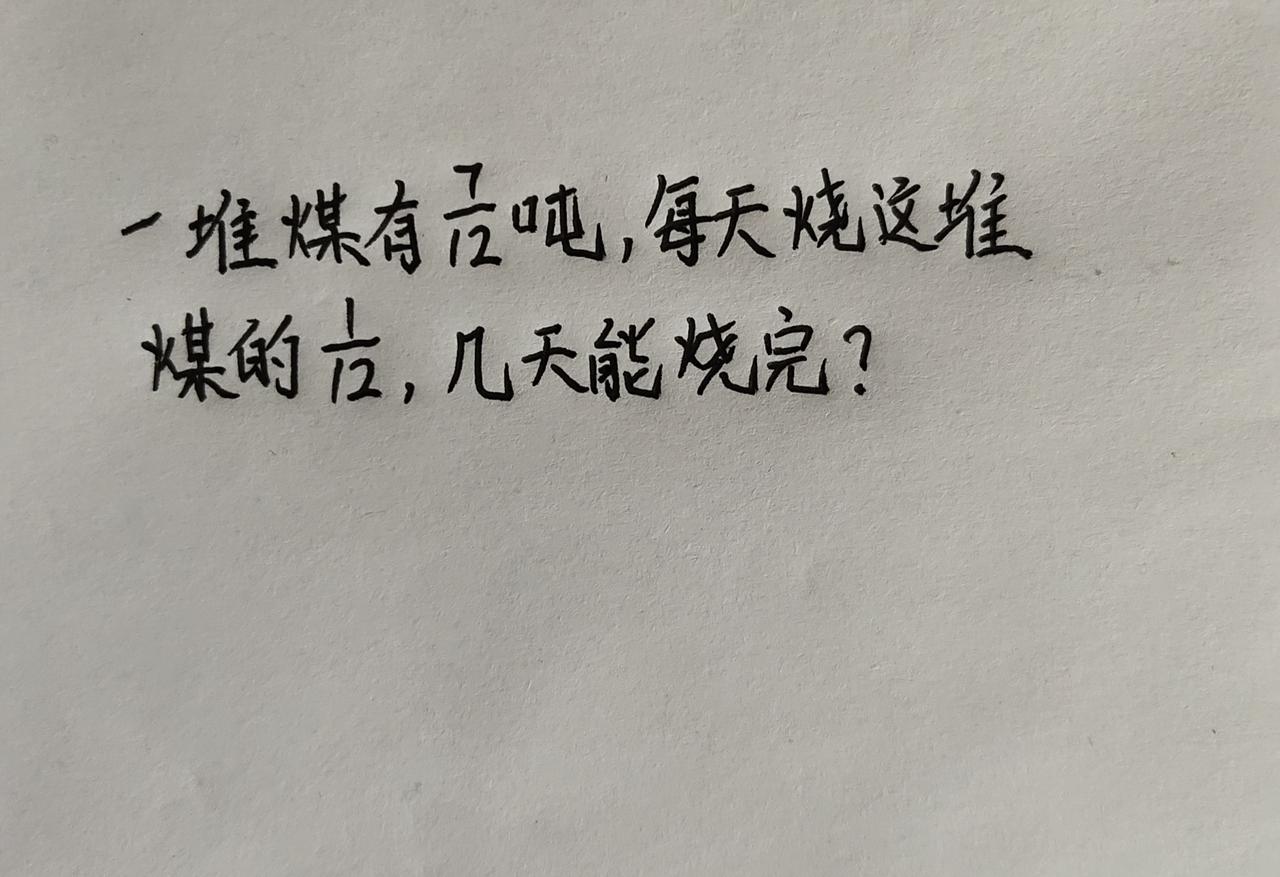 一堆煤有7/12吨,每天烧这堆
煤的1/12,几天能烧完?